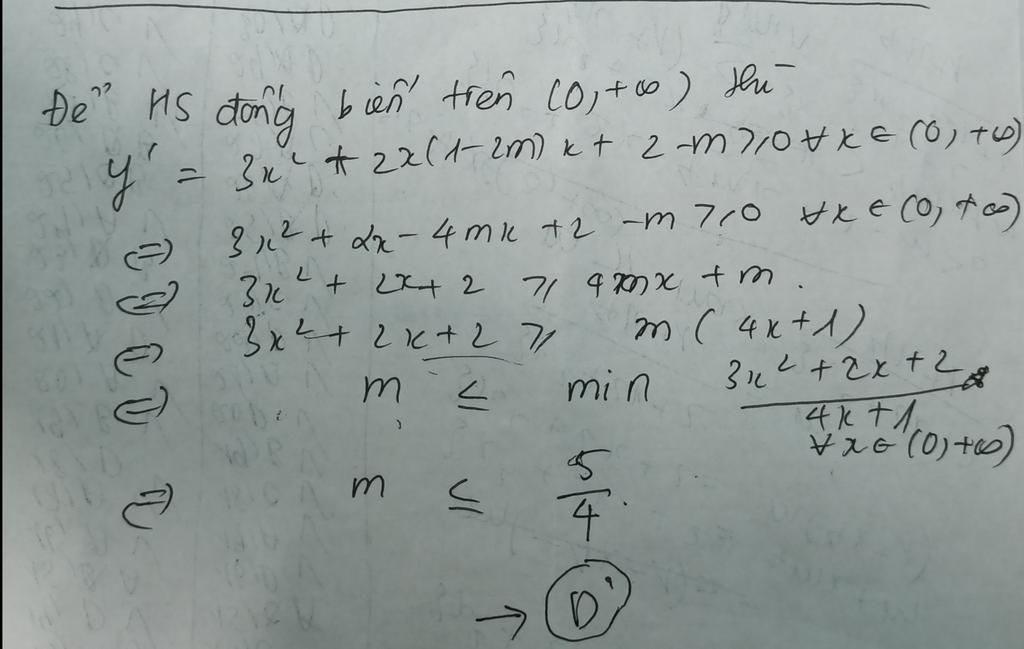 Để HS đồng biến trên (0, +∞) thì
y' = 3x² + 2x(1-2m)x + 2 - m ≥ 0 ∀x ∈ (0, +∞)
⇔ 3x² + 2x - 4mx + 2 - m ≥ 0 ∀x ∈ (0, +∞)
⇔ 3x² + 2x + 2 ≥ 4mx + m.
⇔ 3x² + 2x + 2 ≥ m(4x+1)
⇔ m ≤ min (3x² + 2x + 2)/(4x+1)
∀x ∈ (0, +∞)
⇔ m ≤ 5/4.
→ D